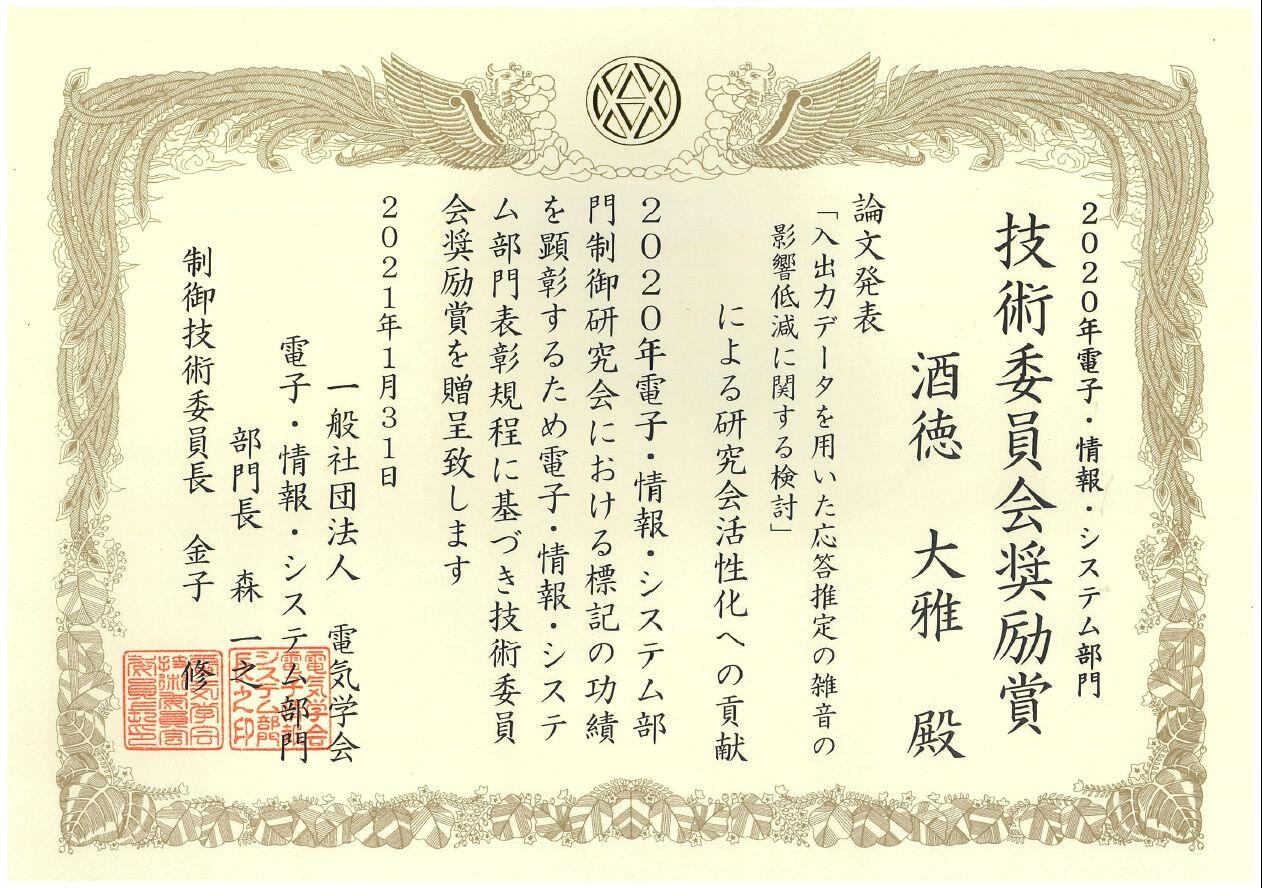 2020年電子・情報・システム部門
技術委員会奨励賞
酒徳 大雅 殿
論文発表
「入出力データを用いた応答推定の雑音の
影響低減に関する検討」
による研究会活性化への貢献
2020年電子・情報・システム部
門制御研究会における標記の功績
を顕彰するため電子・情報・システ
ム部門表彰規程に基づき技術委員
会奨励賞を贈呈致します
2021年1月31日
一般社団法人 電気学会
電子・情報・システム部門
部門長 森 一之
制御技術委員長 金子 修
電気学会
電子情報
システム部門
長之印